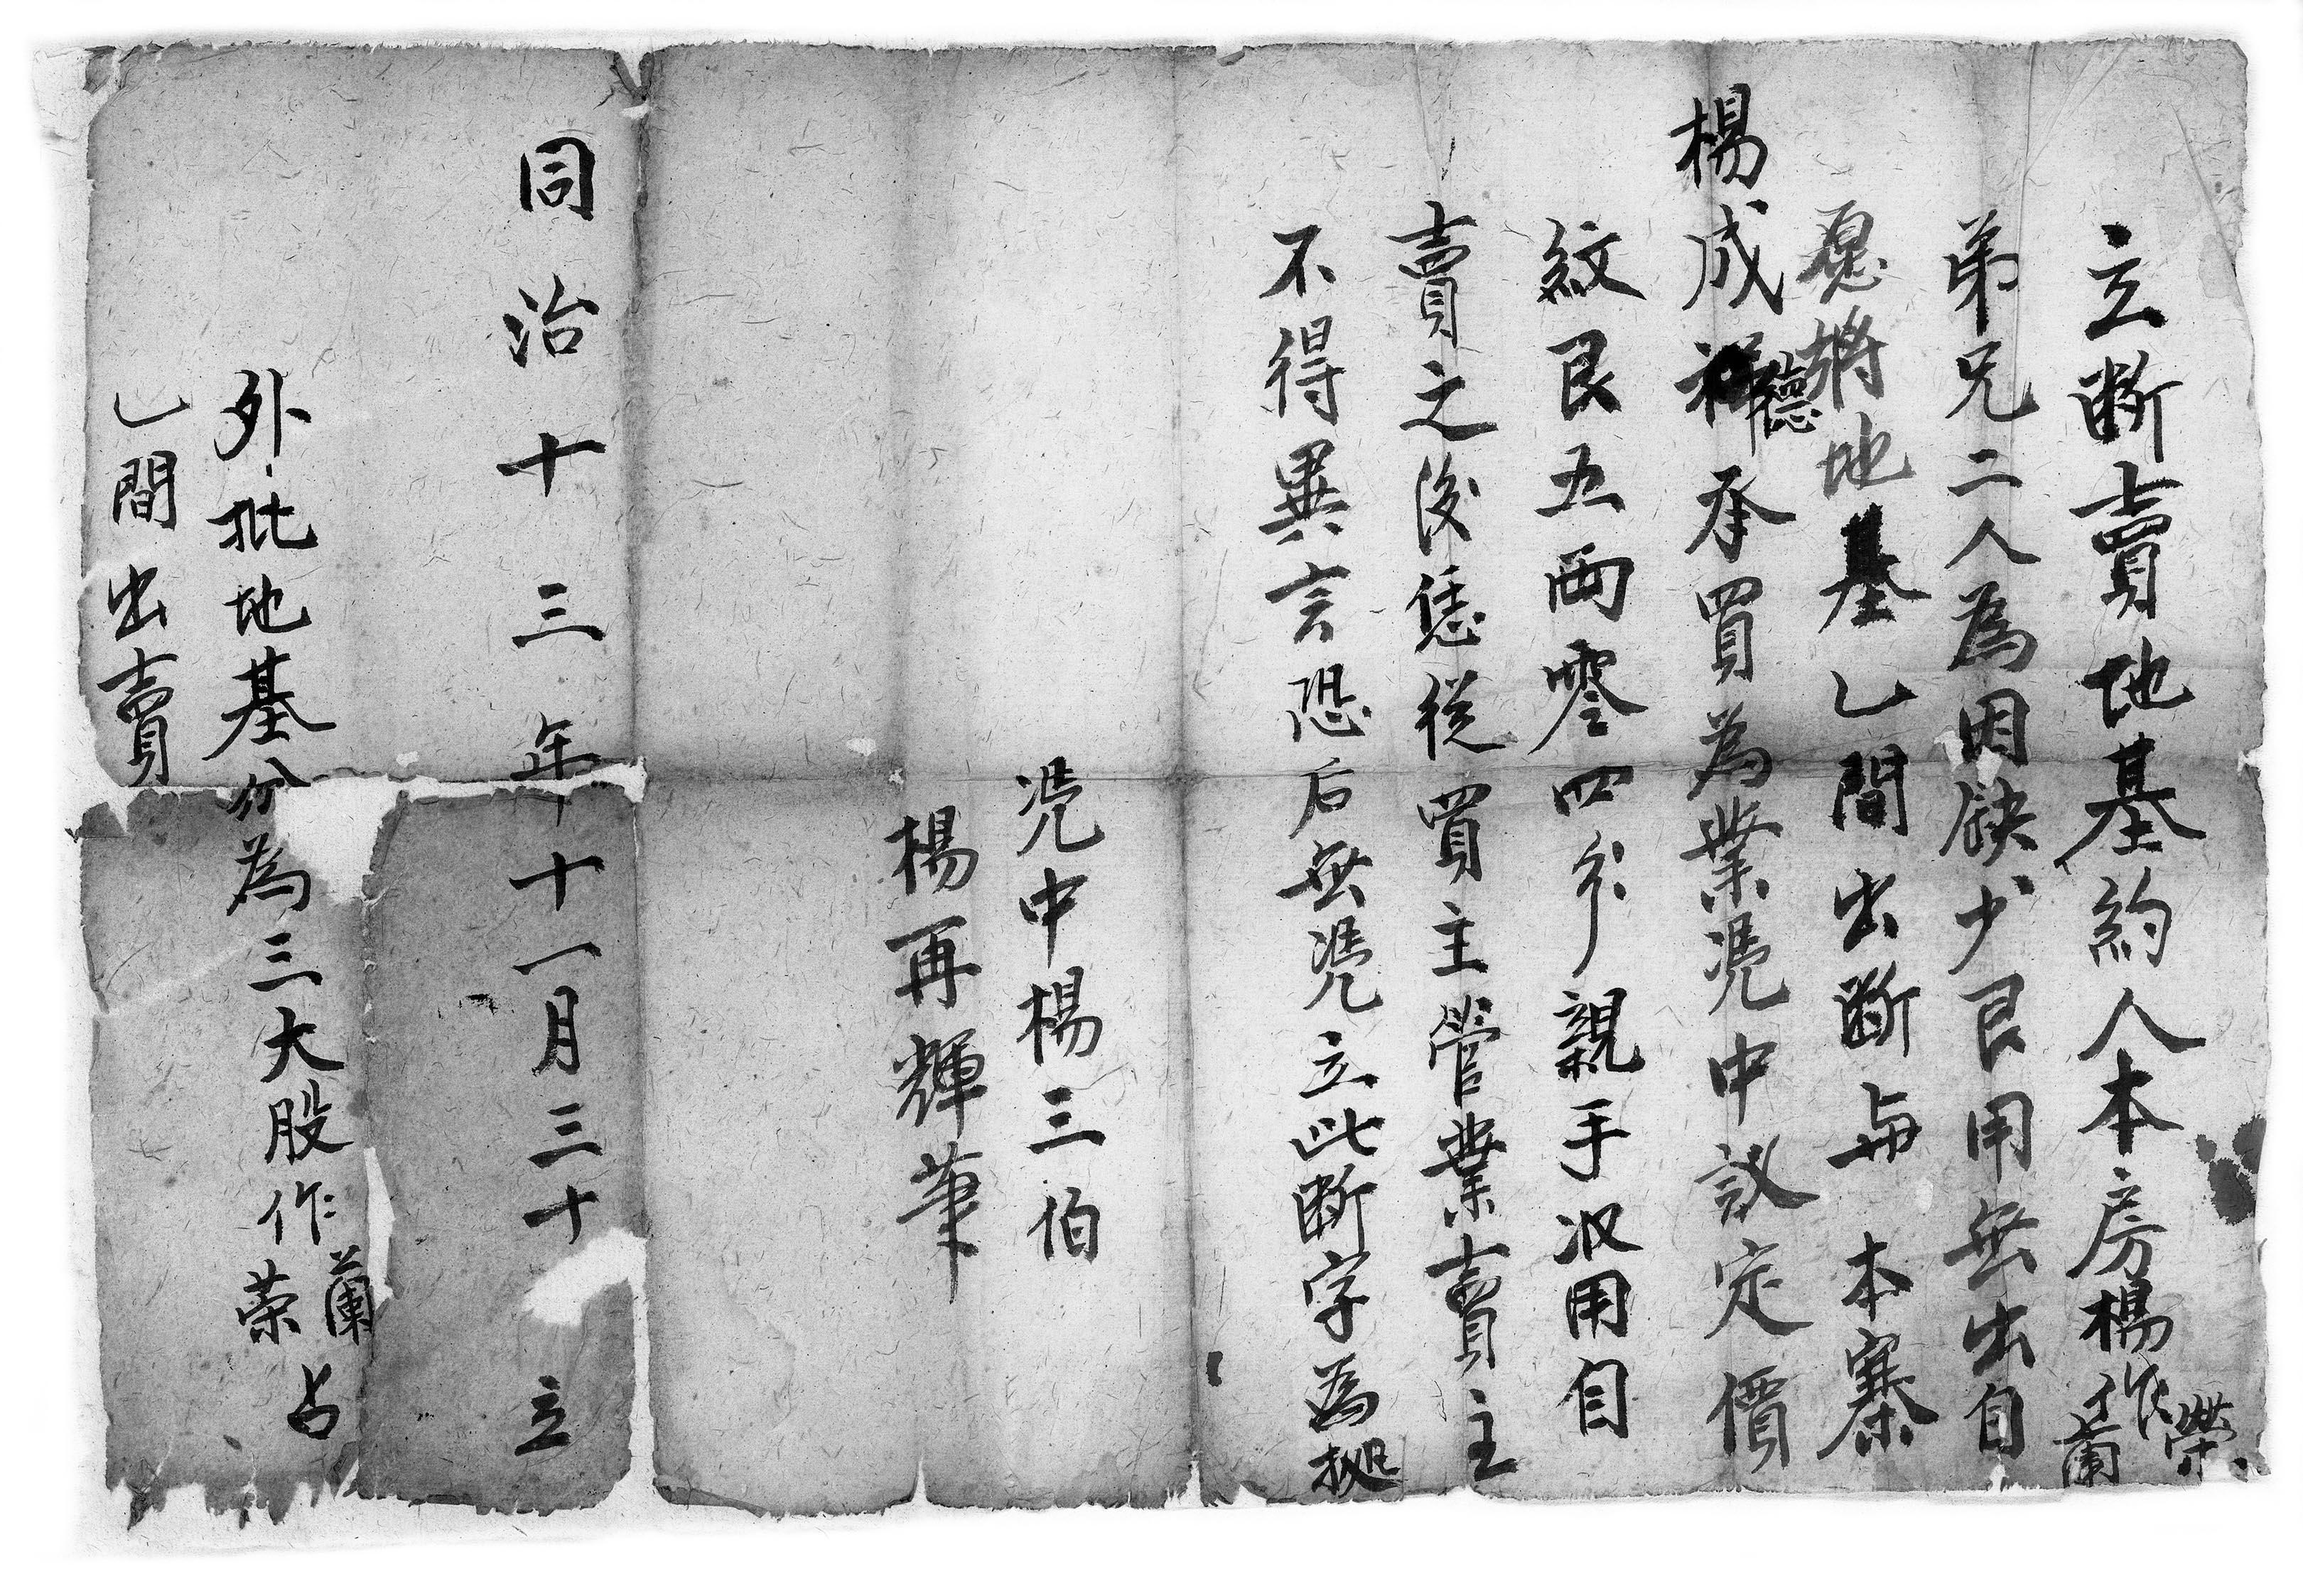 立斷賣地基約人本房楊作榮蘭
弟兄二人為因缺少艮用無出自
愿將地基乚間出斷与本寨
楊成德承買為業凴中議定價
紋艮五両零四分親手収用自
賣之後恁從買主管業賣主
不得異言恐后無凴立此斷字為拠
凴中楊三伯
楊再輝筆
同治十三年十一月三十立
外批地基分為三大股作蘭荣占
乚間出賣